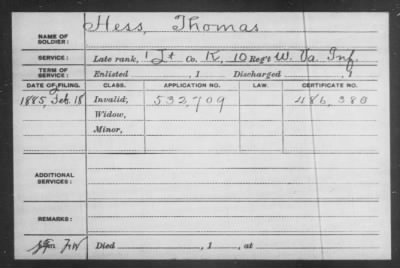 NAME OF SOLDIER: Hess, Thomas
SERVICE: Late rank, Co. K, 10 Reg't W. Va. Inf.
TERM OF SERVICE: Enlisted , 1 Discharged , 1
DATE OF FILING. CLASS. APPLICATION NO. LAW. CERTIFICATE NO.
1885, Feb. 18 Invalid, 532,709 486,380
Widow,
Minor,
ADDITIONAL SERVICES:
REMARKS:
Died , 1 , at